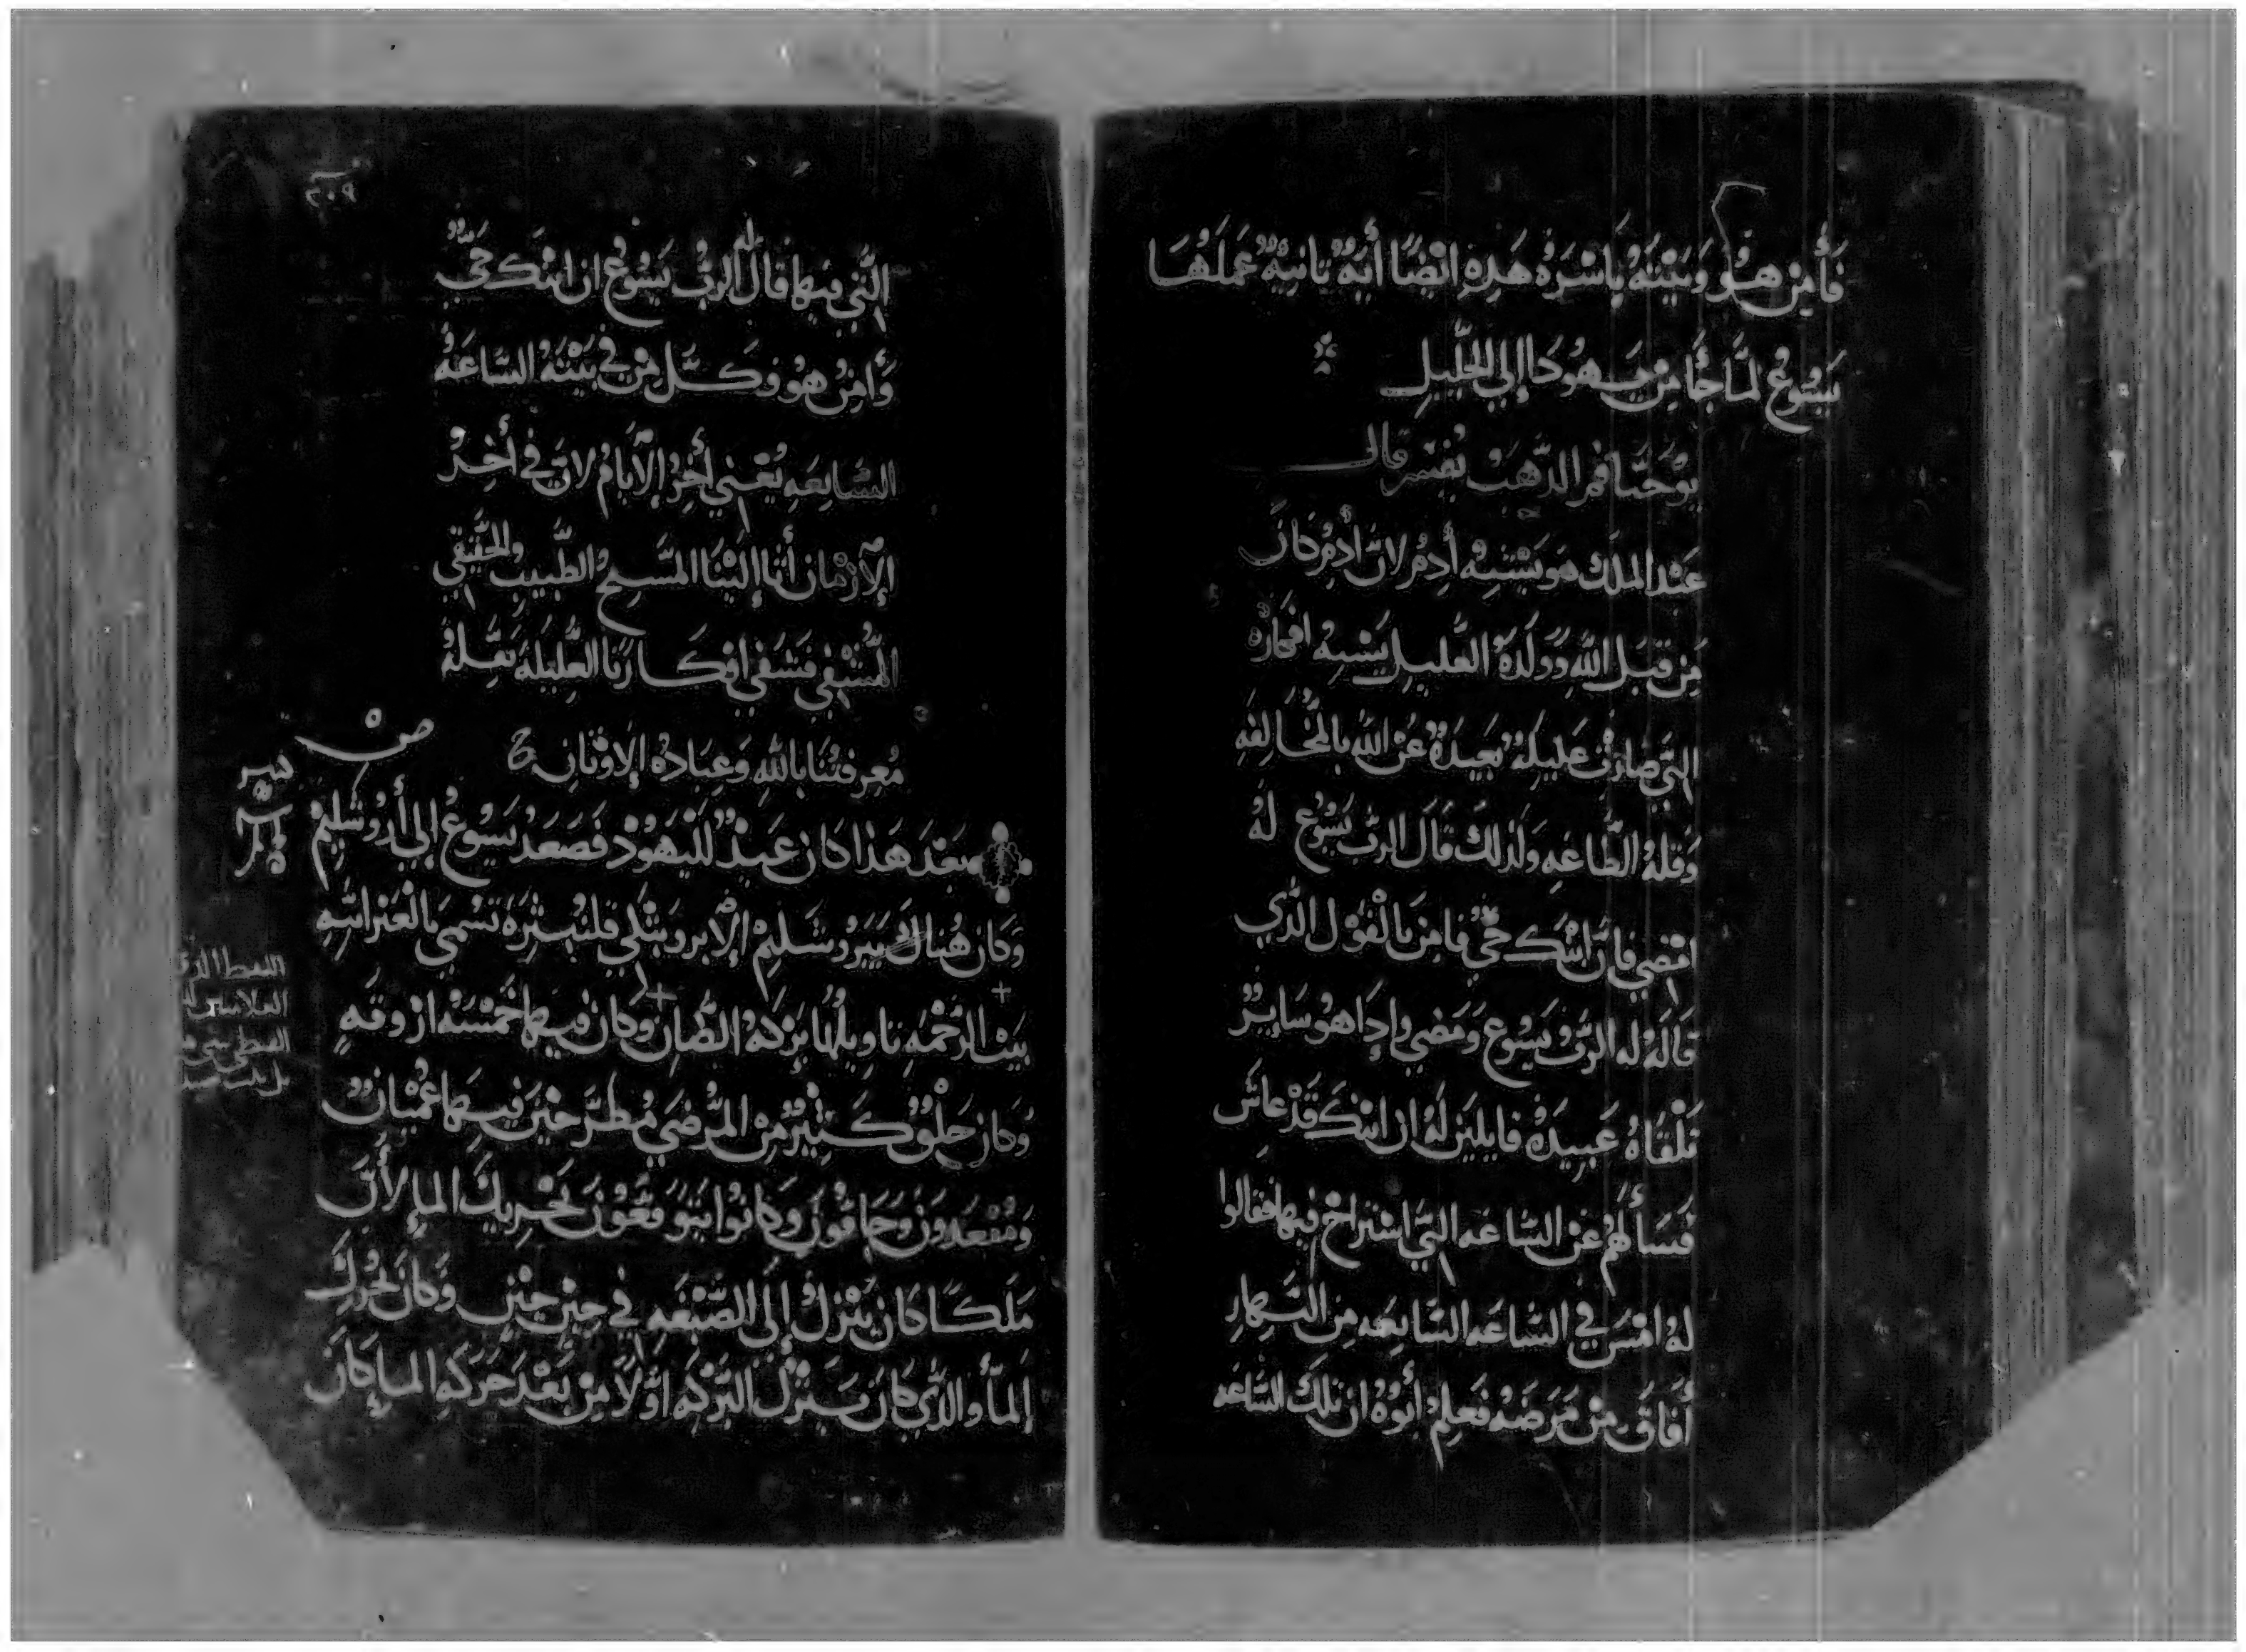 فَأَمِنَ هُوَ وَبَيْتَهُ بِاَسْرَهُ هَدِهِ اَيْضًا أَيَةٌ تانِيَةٌ عَمَلَهُا
يَسُوعُ لَمَّا جَأَ مِن يَهُودَا إلي الجَلِيلِ
يوحَنا فمر الدَّهبْ يُفسر قال
عَبْد الملَك هوَ يَشْبِهُ أدمُ لانَّ أدمُ كانَ
مِن قِبَلِ اللَّهِ وَولَدَهُ العَليلِ يَشبِهُ افكارهُ
التي صَارَتْ عَليلَةٌ بَعِيدَةٌ عَنِ اللَّهِ بالمُخالِفَهِ
وَقلةُ الطَّاعَهِ وَلذلكَ قَالَ الرَبُ يَسُوع لهُ
امْضِي فانَّ ابْنَك حَيٌّ فامِنَ بالْقَوْلِ الذِّي
قَالَهُ له الرَبُّ يَسُوع وَمَضي وإدَا هُو سَايِرٌ
تَلقَاهُ عَبِيدَهُ قايلينَ لهُ ان ابْنَك قَدْ عاش
فَسَأَلَهُمْ عَنِ السَّاعَه التِّي اسْتراحَ فيها فقالوا
لهُ امْسِ في السَّاعَه السَّابِعَه مِنَ النَّهارِ
أفَاقَ مِنْ مَرَضَهِ فَعَلِمَ أبُوهُ ان تلكَ السَّاعَه
٢٠٩
التَّي فيها قال له الربُ يَسُوعُ ان ابنَك حَيٌّ
وَأمِنُ هُو وَكلّ مِن في بَيْتَهُ السَّاعَهُ
السَّابِعَهِ يُعْني أخِرُ الأيامُ لانَّ في أخِرْ
الأزمان أتا إلَيْنَا المَّسِيحُ الطَّبيبِ الحَقيقي
المُشْفِي فَشَفي افكارنا العَلِيلَة بقِلةُ
مُعرِفتُنا باللَّهِ وَعِبَادةُ الأوْثانِ
صْ ٥
بَعْدَ هَذا كان عَيدٌ لليَهُودْ فَصَعَدْ يَسُوعُ إلي أُرُوشَلِيمْ
وَكان هُناكَ بيَرُوشَلِيمْ الإبروبَتْكي قلنبثرَة تسْمِي بالعبْرانيَهِ
بَيْت الرَّحْمَهِ تاويلُها بِرْكَةُ الضَّانِ وَكانَ فيها خَمْسَهُ ازْوقَهٍ
وَكانَ خلوقٌ كَثِيرٌ مِنَ المَرْضَي مُطرَّحِيْنَ فيها عُمْيَانٌ
وَمُقعَدونْ وَجَافونْ وَكانُوا يَتَوَقعُونَ تحْرِيكَ المإ لأنَّ
مَلَكًا كانَ يَنْزِلُ إلى الصَّبْغَهِ في حِينٍ حِينٍ وَكانَ يحَرِّكَ
المأ والذي كان ينزل البَرْكَهِ اوَّلاً مِنْ بَعْدَ حَرَكَهِ المإ كانَ